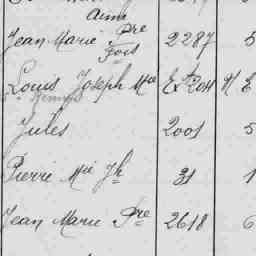 Aimé
Jean Marie Pre 2287 5
Fois
Louis Joseph Mie
Jules 2001 5
Pierre Mie Jh 31 1
Jean Marie Pre 2618 6